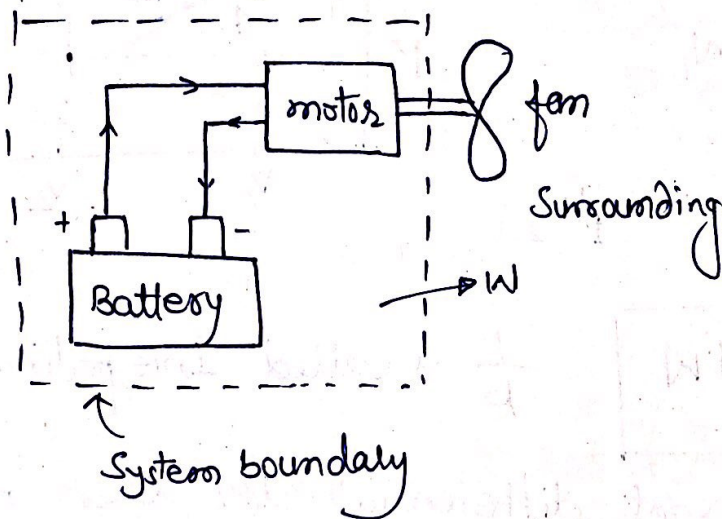 motor
fan
Surrounding
+
-
Battery
W
System boundary